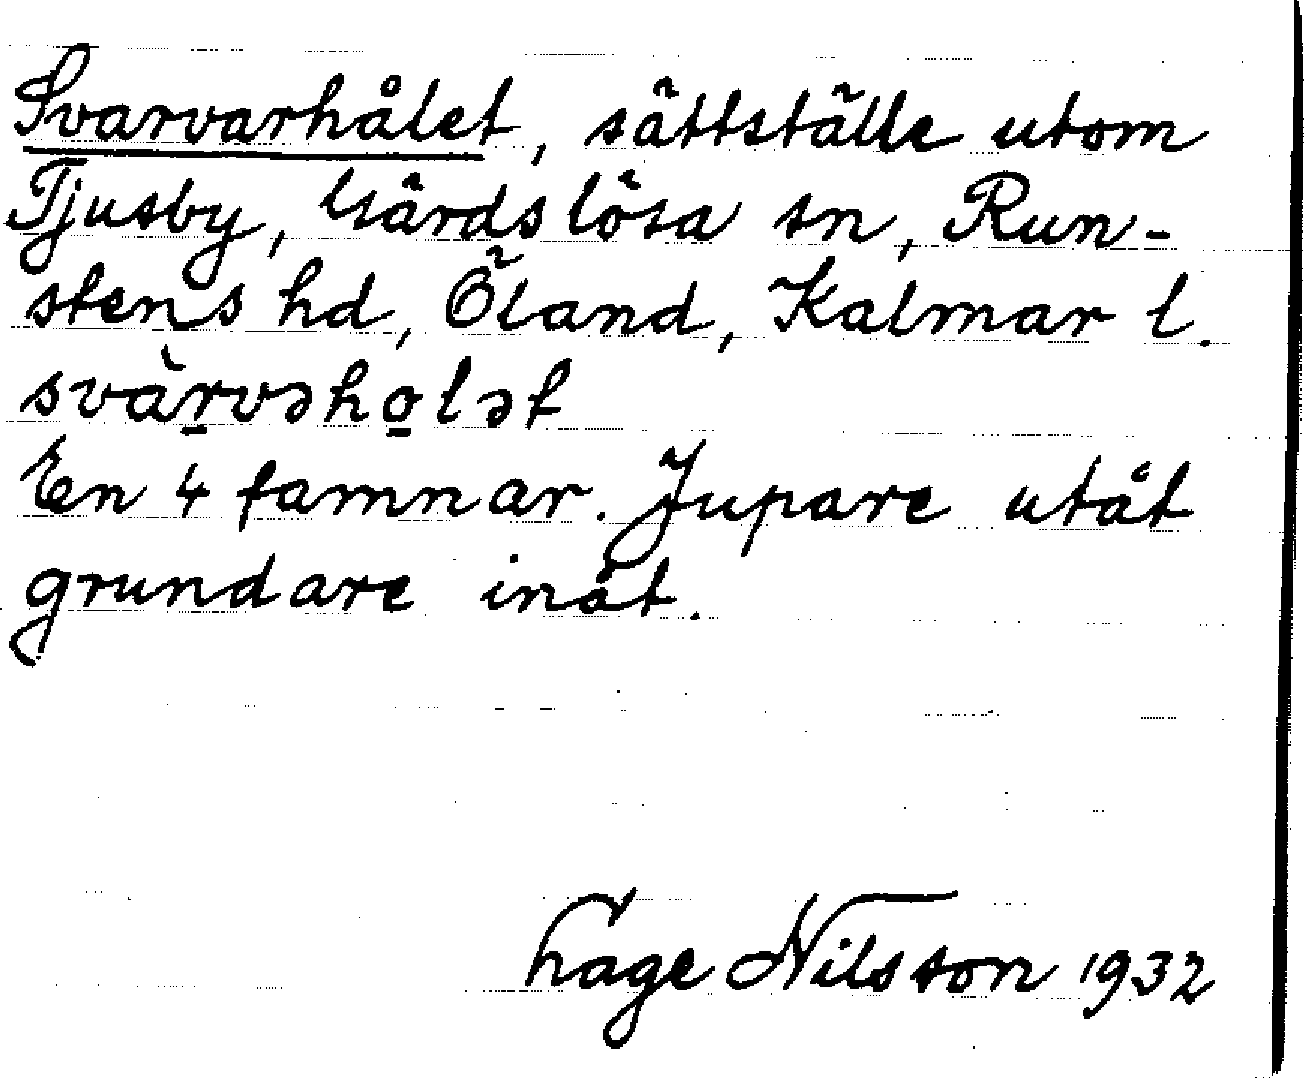 Svarvarhålet, sättställe utom
Tjusby, Gärdslösa sn, Run-
stens hd, Öland, Kalmar l.
svàr̲vəho̲lət
En 4 famnar. Jupare utåt
grundare inåt.
Hage Nilsson 1932